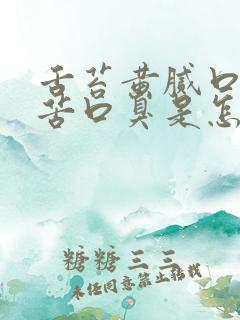 舌苔黄腻口
苦口臭是怎
糖糖三三
未经同意禁止转载